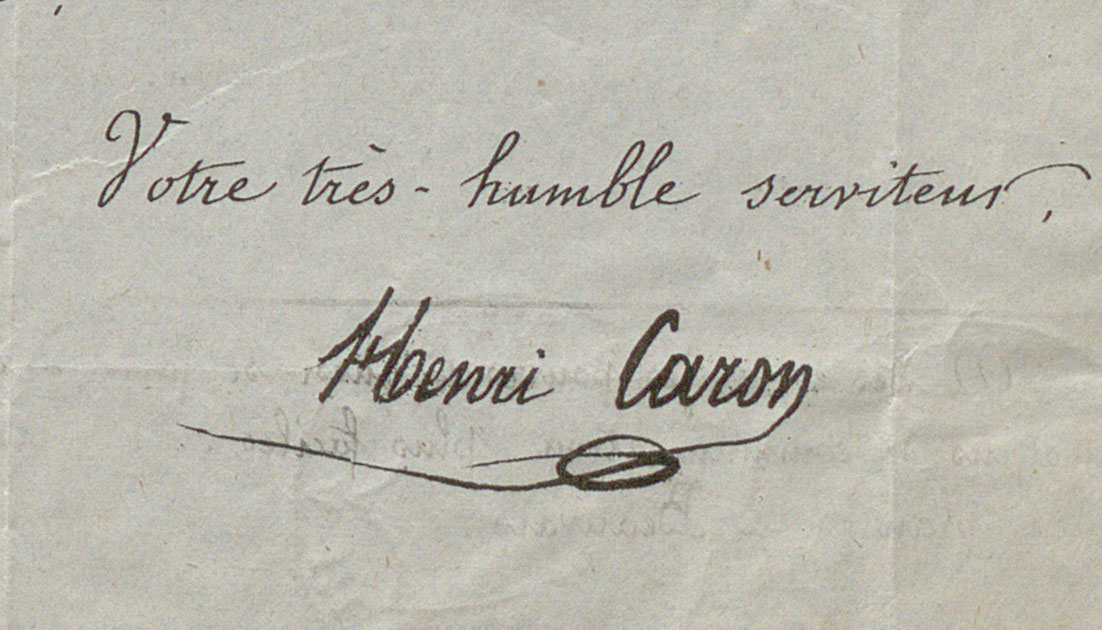 Votre très-humble serviteur,
Henri Caron